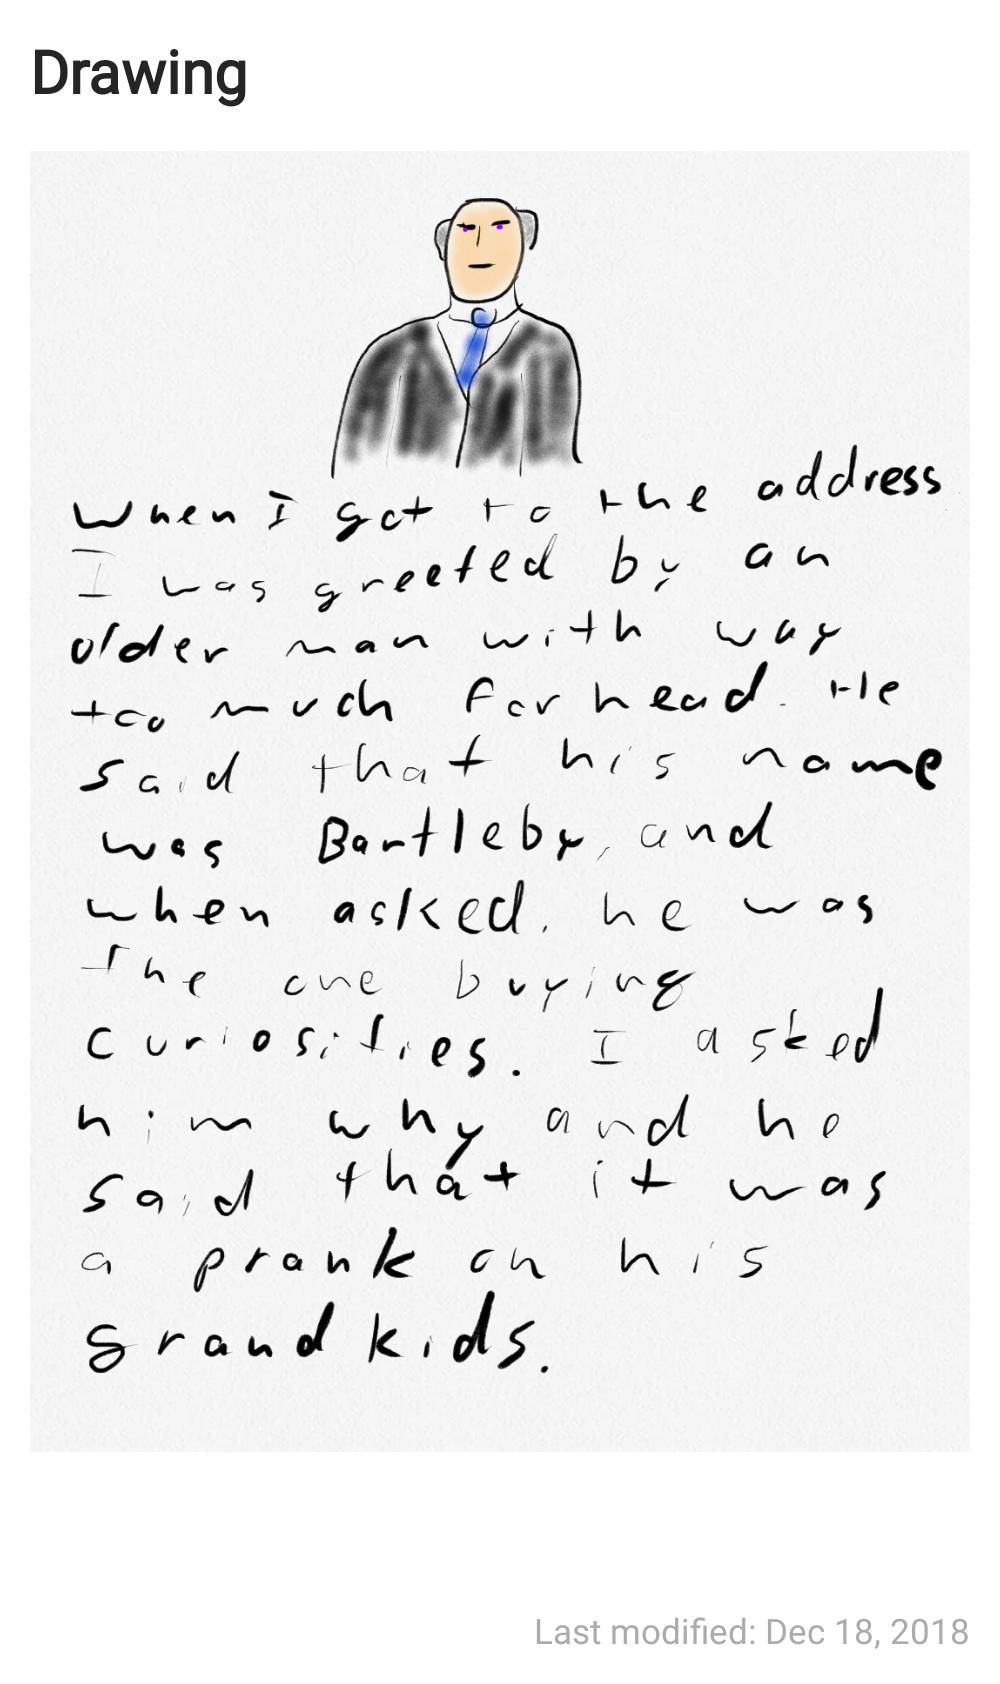 Drawing
When I got to the address
I was greeted by an
older man with way
too much forhead. He
said that his name
was Bartleby, and
when asked, he was
the one buying
curiosities. I asked
him why and he
said that it was
a prank on his
grandkids.
Last modified: Dec 18, 2018